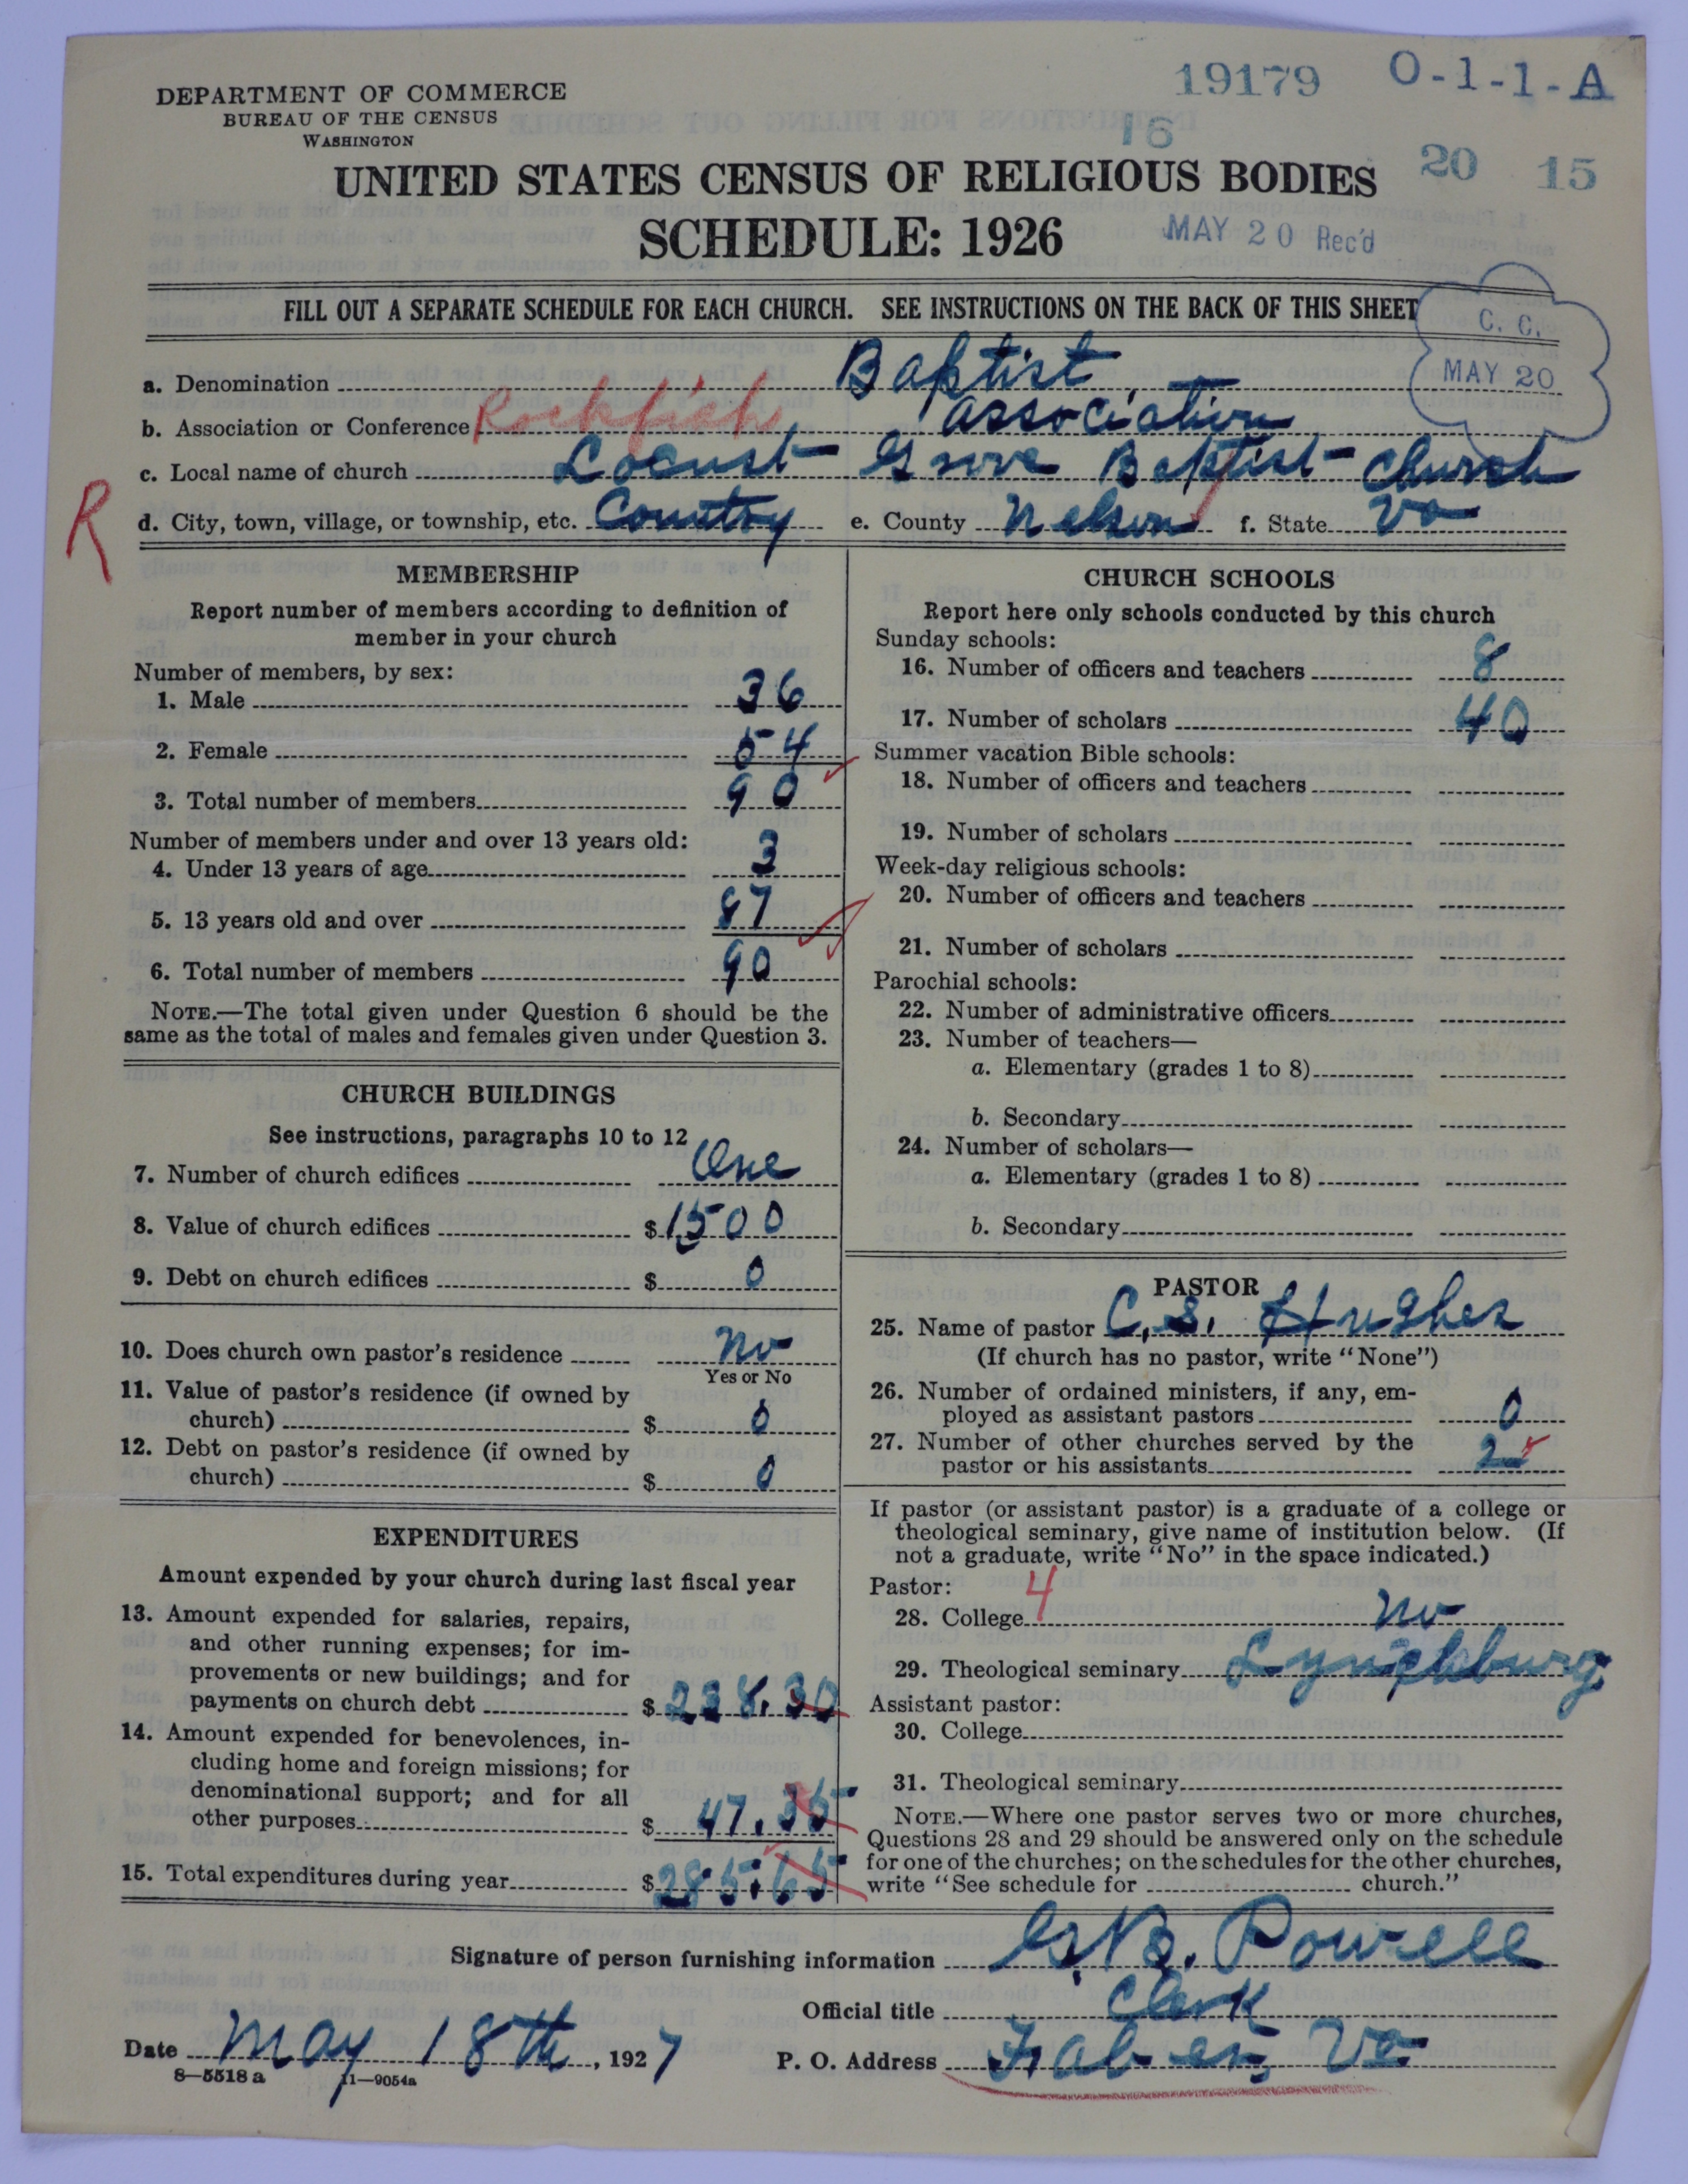 19179 O-1-1-A
DEPARTMENT OF COMMERCE
BUREAU OF THE CENSUS
WASHINGTON
16
20 15
UNITED STATES CENSUS OF RELIGIOUS BODIES
SCHEDULE: 1926
MAY 20 Rec'd
FILL OUT A SEPARATE SCHEDULE FOR EACH CHURCH. SEE INSTRUCTIONS ON THE BACK OF THIS SHEET
C. C.
MAY 20
a. Denomination Baptist
b. Association or Conference Rockfish Association
c. Local name of church Locust Grove Baptist Church
R
d. City, town, village, or township, etc. Country e. County Nelson f. State Va
MEMBERSHIP
Report number of members according to definition of
member in your church
Number of members, by sex:
1. Male 36
2. Female 54
3. Total number of members 90
Number of members under and over 13 years old:
4. Under 13 years of age 3
5. 13 years old and over 87
6. Total number of members 90
NOTE.—The total given under Question 6 should be the
same as the total of males and females given under Question 3.
CHURCH BUILDINGS
See instructions, paragraphs 10 to 12
7. Number of church edifices One
8. Value of church edifices $1500
9. Debt on church edifices $ 0
10. Does church own pastor's residence No
Yes or No
11. Value of pastor's residence (if owned by
church) $ 0
12. Debt on pastor's residence (if owned by
church) $ 0
EXPENDITURES
Amount expended by your church during last fiscal year
13. Amount expended for salaries, repairs,
and other running expenses; for im-
provements or new buildings; and for
payments on church debt $ 238.30
14. Amount expended for benevolences, in-
cluding home and foreign missions; for
denominational support; and for all
other purposes $ 47.35
15. Total expenditures during year $ 285.65
CHURCH SCHOOLS
Report here only schools conducted by this church
Sunday schools:
16. Number of officers and teachers 8
17. Number of scholars 40
Summer vacation Bible schools:
18. Number of officers and teachers
19. Number of scholars
Week-day religious schools:
20. Number of officers and teachers
21. Number of scholars
Parochial schools:
22. Number of administrative officers
23. Number of teachers—
a. Elementary (grades 1 to 8)
b. Secondary
24. Number of scholars—
a. Elementary (grades 1 to 8)
b. Secondary
PASTOR
25. Name of pastor C. S. Hughes
(If church has no pastor, write "None")
26. Number of ordained ministers, if any, em-
ployed as assistant pastors 0
27. Number of other churches served by the
pastor or his assistants 2
If pastor (or assistant pastor) is a graduate of a college or
theological seminary, give name of institution below. (If
not a graduate, write "No" in the space indicated.)
Pastor: 4
28. College No
29. Theological seminary Lynchburg
Assistant pastor:
30. College
31. Theological seminary
NOTE.—Where one pastor serves two or more churches,
Questions 28 and 29 should be answered only on the schedule
for one of the churches; on the schedules for the other churches,
write "See schedule for church."
Signature of person furnishing information G. B. Powell
Official title Clerk
Date May 18th, 1927 P. O. Address Faber, Va
8—5518a 11—9054a